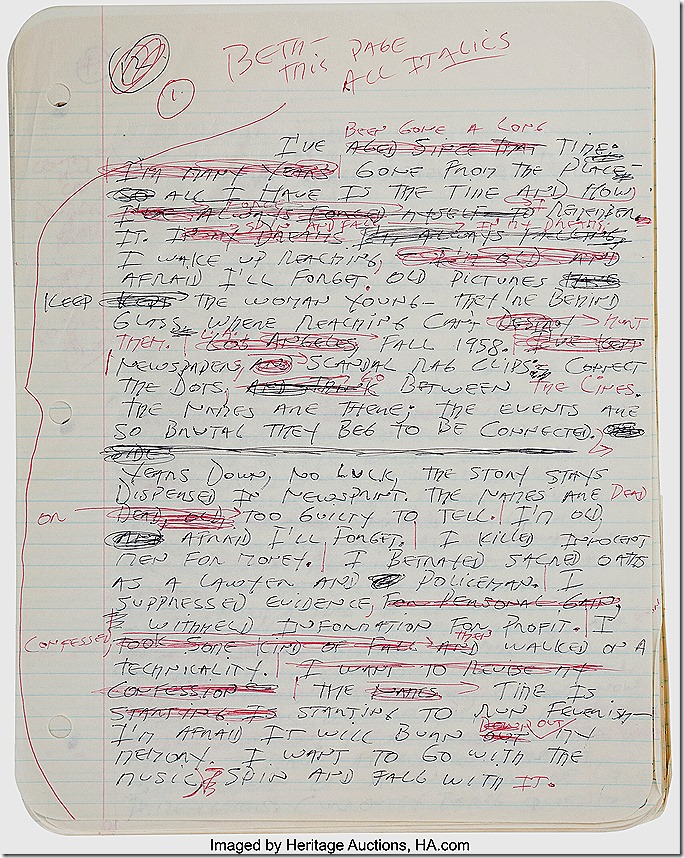 ①
BETH-
THIS PAGE
ALL ITALICS
BEEN GONE A LONG
I'VE AGED SINCE THAT TIME:
I'M MANY YEARS GONE FROM THE PLACE-
SO ALL I HAVE IS THE TIME AND HOW
I'VE ALWAYS FORCED MYSELF TO REMEMBER
IT. IN MY DREAMS I'M ALWAYS FALLING,
SPIN AND FALL IN MY DREAMS,
I WAKE UP REACHING, I'M OLD AND
AFRAID I'LL FORGET. OLD PICTURES HAVE
KEEP KEPT THE WOMAN YOUNG- THEY'RE BEHIND
GLASS, WHERE REACHING CAN'T DESTROY HURT
THEM. LOS ANGELES, FALL 1958. I'VE KEPT
NEWSPAPERS, AND SCANDAL RAG CLIPS: CONNECT
THE DOTS, AND THINK BETWEEN THE LINES.
THE NAMES ARE THERE; THE EVENTS ARE
SO BRUTAL THEY BEG TO BE CONNECTED.
YEARS DOWN, NO LUCK, THE STORY STAYS
DISPERSED IN NEWSPRINT. THE NAMES ARE DEAD
OR DEAD, OLD, TOO GUILTY TO TELL. I'M OLD,
AND AFRAID I'LL FORGET. I KILLED INNOCENT
MEN FOR MONEY. I BETRAYED SACRED OATHS
AS A LAWYER AND POLICEMAN. I
SUPPRESSED EVIDENCE, FOR PERSONAL GAIN,
WITHHELD INFORMATION FOR PROFIT. I
CONFESSED, TOOK SOME KIND OF FALL AND THEN WALKED ON A
TECHNICALITY. I WANT TO REVISE MY
CONFESSION THE NAMES TIME IS
STARTING IS STARTING TO RUN FEVERISH-
I'M AFRAID IT WILL BURN OUT MY
MEMORY. I WANT TO GO WITH THE
MUSIC; SPIN AND FALL WITH IT.
Imaged by Heritage Auctions, HA.com